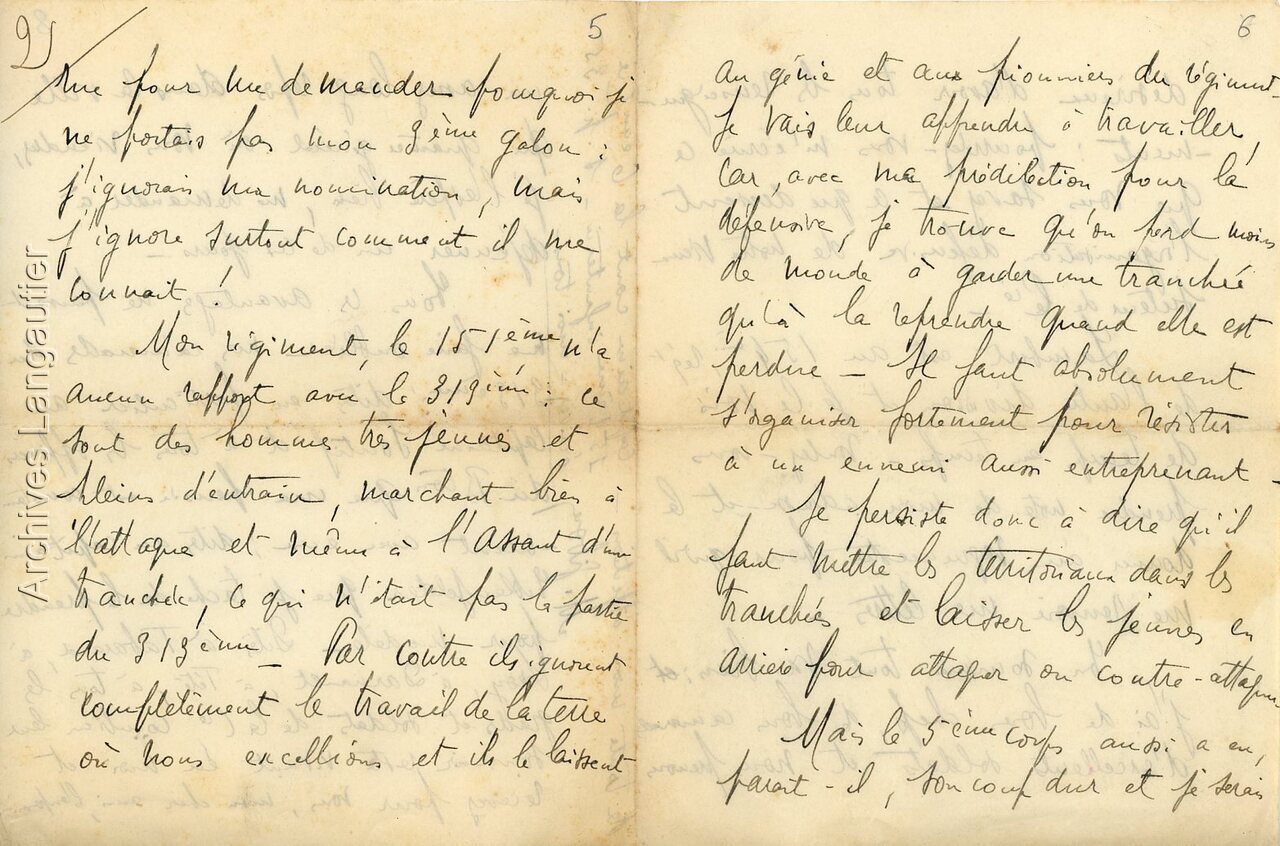 2)
5
me pour me demander pourquoi je
ne portais pas mon 3ème galon :
j'ignorais ma nomination, mais
j'ignore surtout comment il me
connait !
Mon régiment, le 151ème n'a
aucun rapport avec le 313ème : ce
sont des hommes très jeunes et
pleins d'entrain, marchant bien à
l'attaque et même à l'assant d'une
tranchée, ce qui n'était pas la partie
du 313ème _ Par contre ils ignorent
complètement le travail de la terre
où nous excellions et ils le laissent
6
au génie et aux pionniers du régiment_
Je vais leur apprendre à travailler
car, avec ma prédilection pour la
défensive, je trouve qu'on perd moins
de monde à garder une tranchée
qu'à la reprendre quand elle est
perdue _ Il faut absolument
s'organiser fortement pour résister
à un ennemi aussi entreprenant _
Je persiste donc à dire qu'il
faut mettre les territoriaux dans les
tranchées et laisser les jeunes en
arrière pour attaquer ou contre-attaquer
Mais le 5ème corps aussi a eu,
parait-il, son coup dur et je serais
Archives Langautier